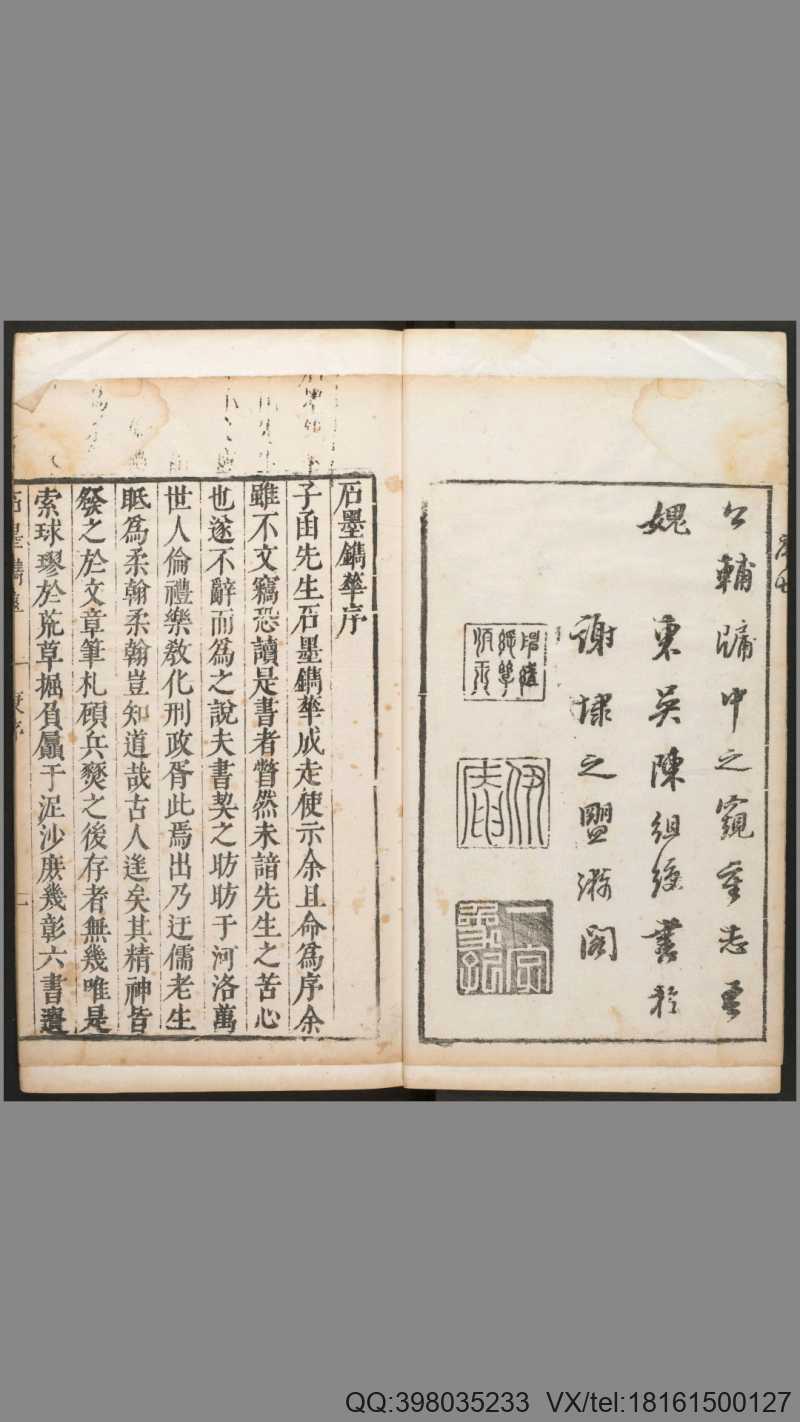 公輔牖中之窺奎志玊
媿
東吳陳組綬書於
謝埭之盟㳺閣
伊庵
石墨鐫華序
子函先生石墨鐫華成走使示余且命爲序余
雖不文竊恐讀是書者瞢然未諳先生之苦心
也遂不辭而爲之說夫書契之昉昉于河洛萬
世人倫禮樂敎化刑政胥此焉出乃迂儒老生
眂爲柔翰柔翰豈知道哉古人逢矣其精神皆
發之於文章筆札碩兵燹之後存者無幾唯是
索球璆於荒草掘負屭于泥沙庶幾彰六書遺
石墨鐫華
QQ:398035233 VX/tel:18161500127